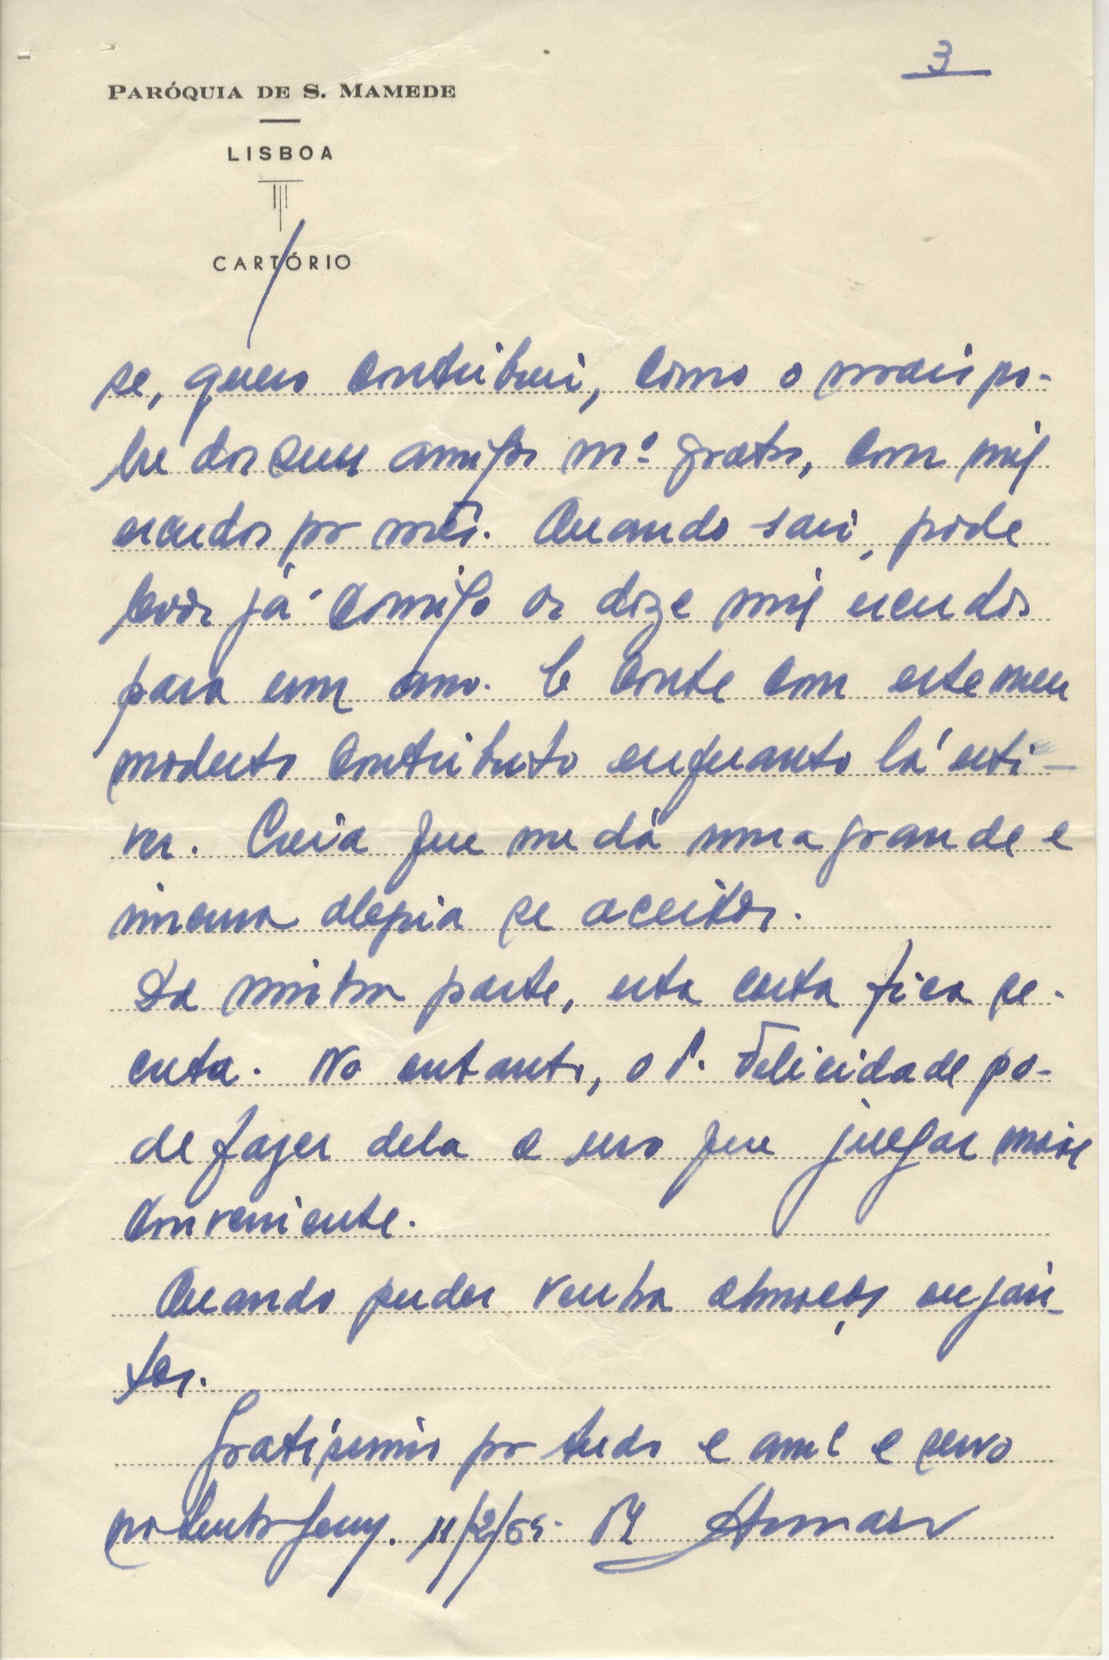 3
PARÓQUIA DE S. MAMEDE
LISBOA
CARTÓRIO
se, quero contribuir, como o mais po-
bre dos seus amigos m.º gratos, com mil
escudos por mês. Quando sair, pode
levar já comigo os doze mil escudos
para um ano. E conte com este meu
modesto contributo enquanto lá esti-
ver. Creia que me dá uma grande e
imensa alegria se aceitar.
Da minha parte, esta carta fica se-
creta. No entanto, o P. Felicidade po-
de fazer dela o uso que julgar mais
conveniente.
Quando puder venha almoçar ou jan-
tar.
Gratíssimo por tudo e am.º e servo
11/2/65.